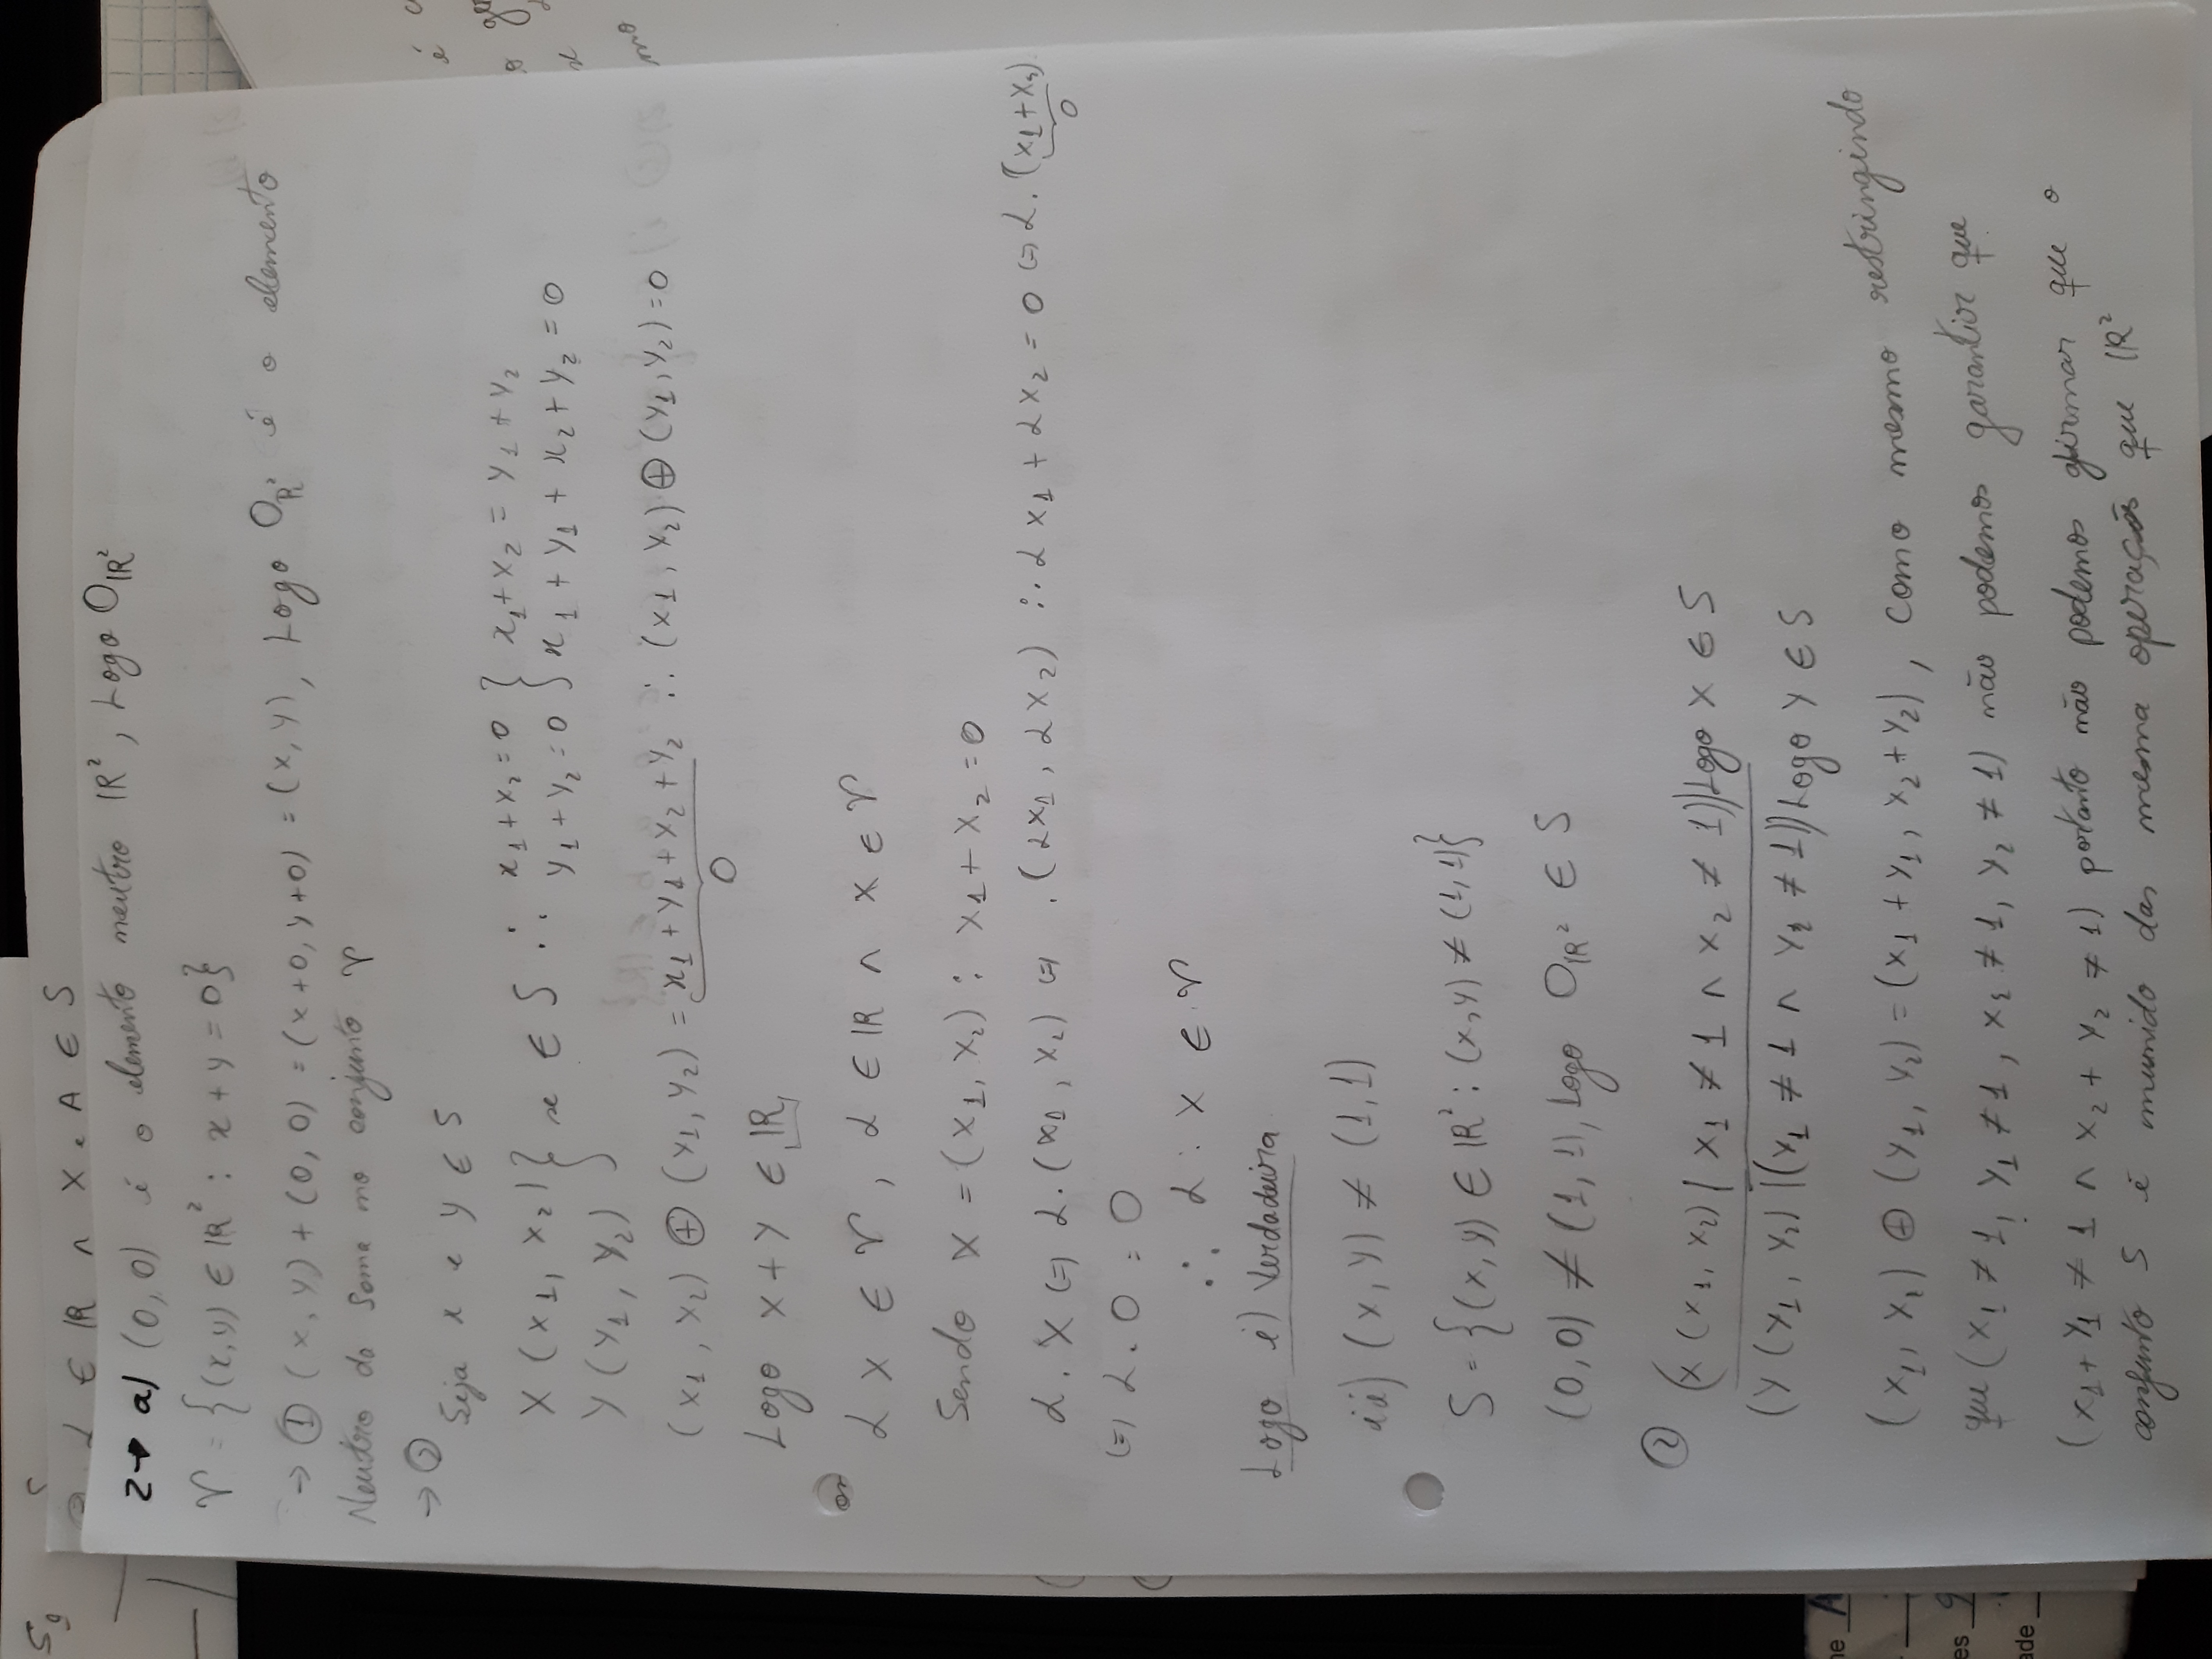 S₉
α ∈ ℝ ∧ X e A ∈ S
2→ a) (0,0) é o elemento neutro ℝ², Logo Oℝ²
V = {(x,y) ∈ ℝ² : x + y = 0}
→ ① (x, y) + (0, 0) = (x+0, y+0) = (x, y), Logo Oℝ² é o elemento
Neutro da Soma no conjunto V
→ ②
Seja x e y ∈ S
X (x₁, x₂)} se ∈ S ∴ x₁+x₂=0 } x₁+x₂ = y₁+y₂
Y (y₁, y₂) } y₁+y₂=0 } x₁ + y₁ + x₂ + y₂ = 0
(x₁, x₂) ⊕ (y₁, y₂) = x₁+y₁+x₂+y₂ ∴ (x₁, y₂) ⊕ (y₁, y₂) = 0
0
Logo x + y ∈ ℝ
α X ∈ V, α ∈ ℝ ∧ X ∈ V
Sendo X = (x₁, x₂) : x₁ + x₂ = 0
α . X (=) α.(x₁, x₂) (=) . (αx₁, αx₂) ∴ αx₁ + αx₂ = 0 (=) α. (x₁+x₂)
0
(=) α . 0 = 0
∴ α . X ∈ V
Logo i) Verdadeira
ii) (x, y) ≠ (1,1)
S = {(x, y) ∈ ℝ² : (x,y) ≠ (1,1)}
(0,0) ≠ (1,1), Logo Oℝ² ∈ S
② (X (x₁, x₂) | x₁ ≠ 1 ∧ x₂ ≠ 1)) Logo X ∈ S
(Y (y₁, y₂) |(y₁ ≠ 1 ∧ y₂ ≠ 1)) Logo Y ∈ S
(x₁, x₂) ⊕ (y₁, y₂) = (x₁ + y₁, x₂ + y₂), como mesmo restringindo
que (x₁ ≠ 1, y₁ ≠ 1, x₂ ≠ 1, y₂ ≠ 1) não podemos garantir que
(x₁ + y₁ ≠ 1 ∧ x₂ + y₂ ≠ 1) portanto não podemos afirmar que o
conjunto S é munido das mesma operações que ℝ²